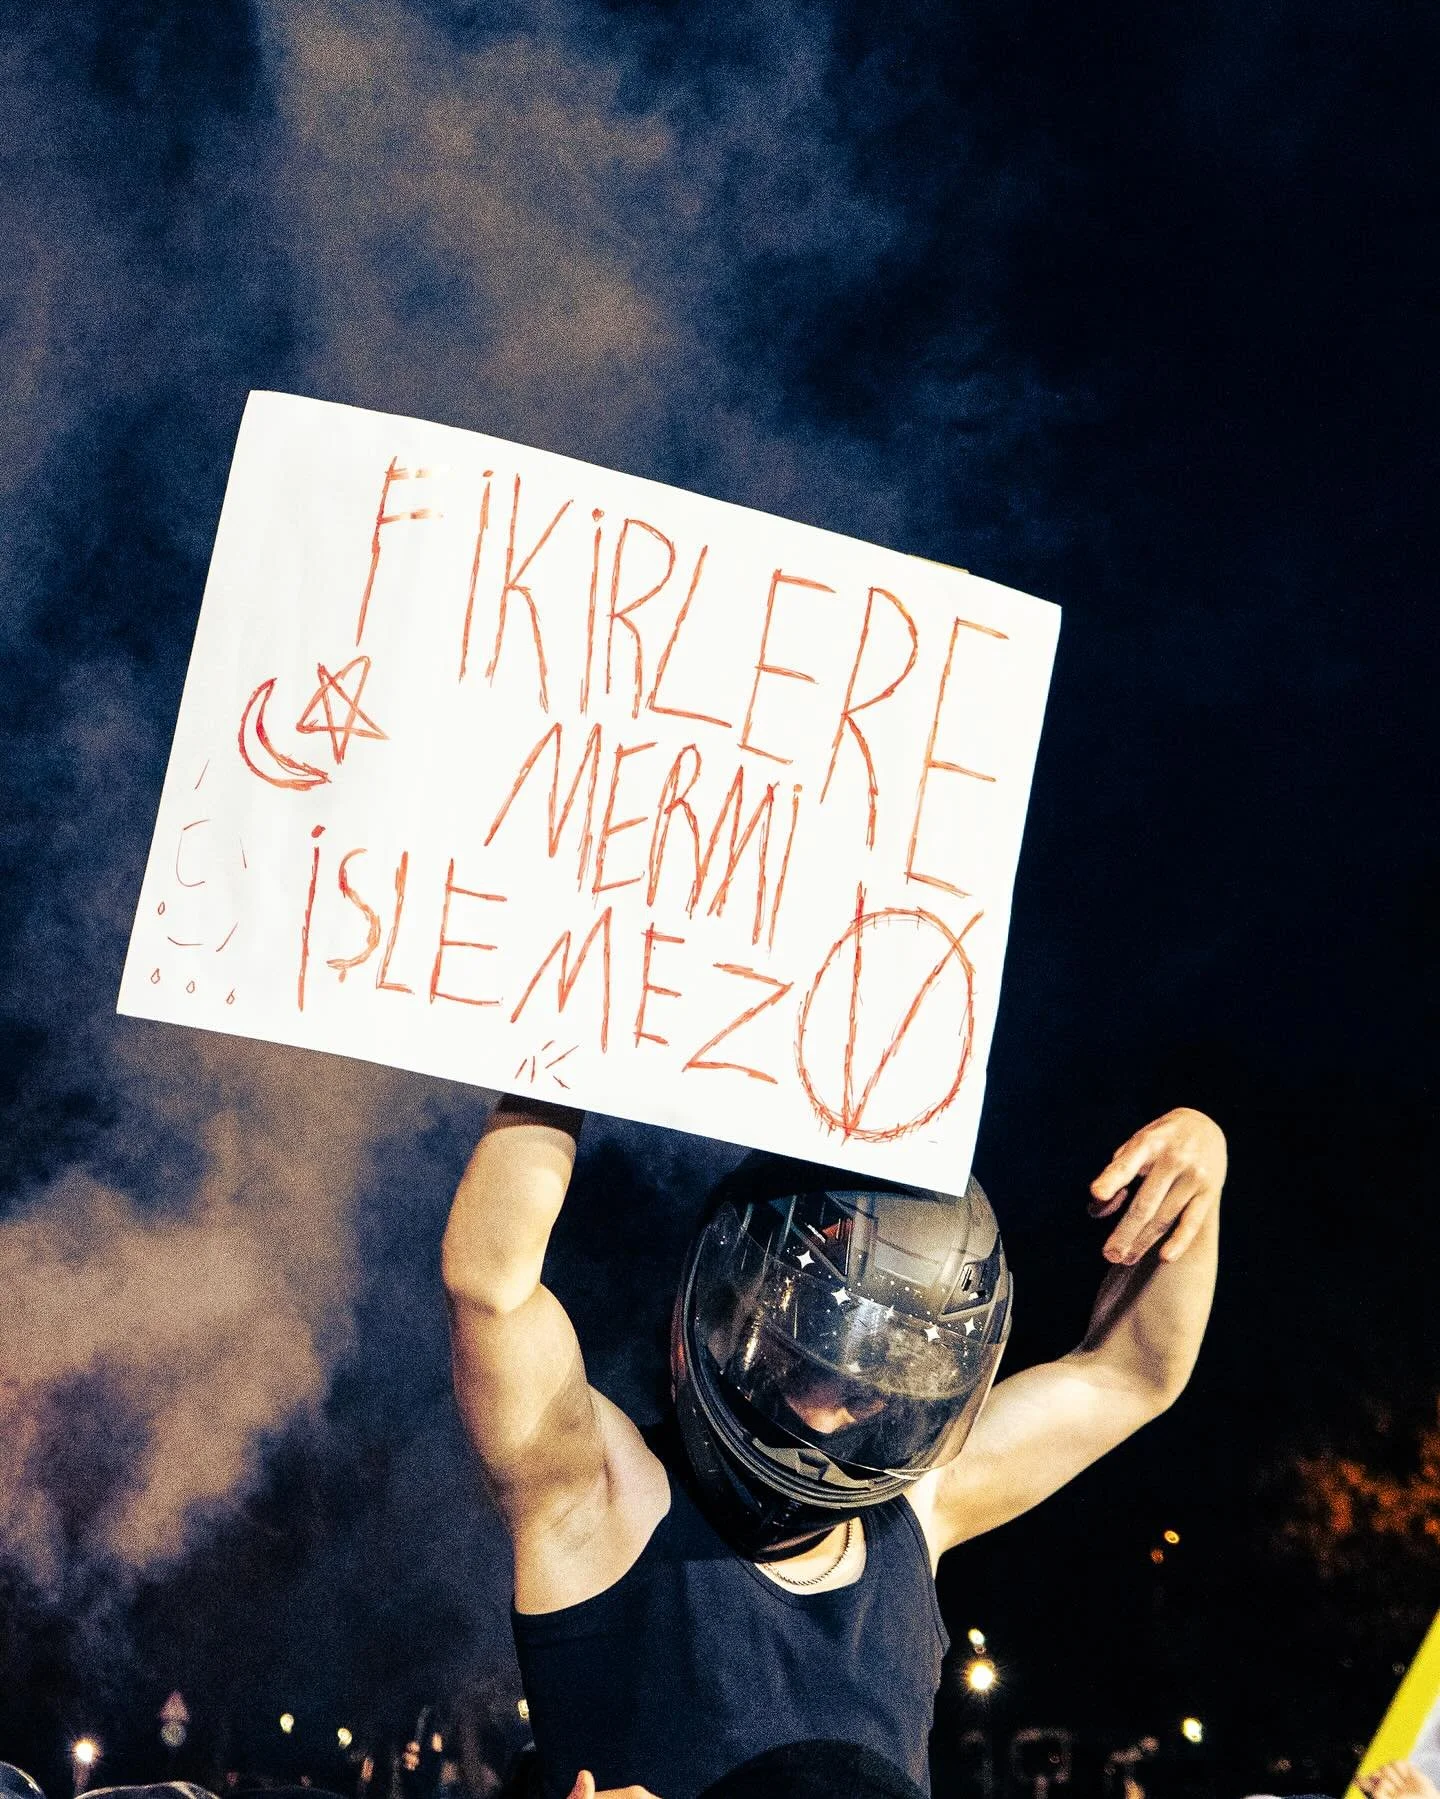 FİKİRLERE
MERMİ
İŞLEMEZ